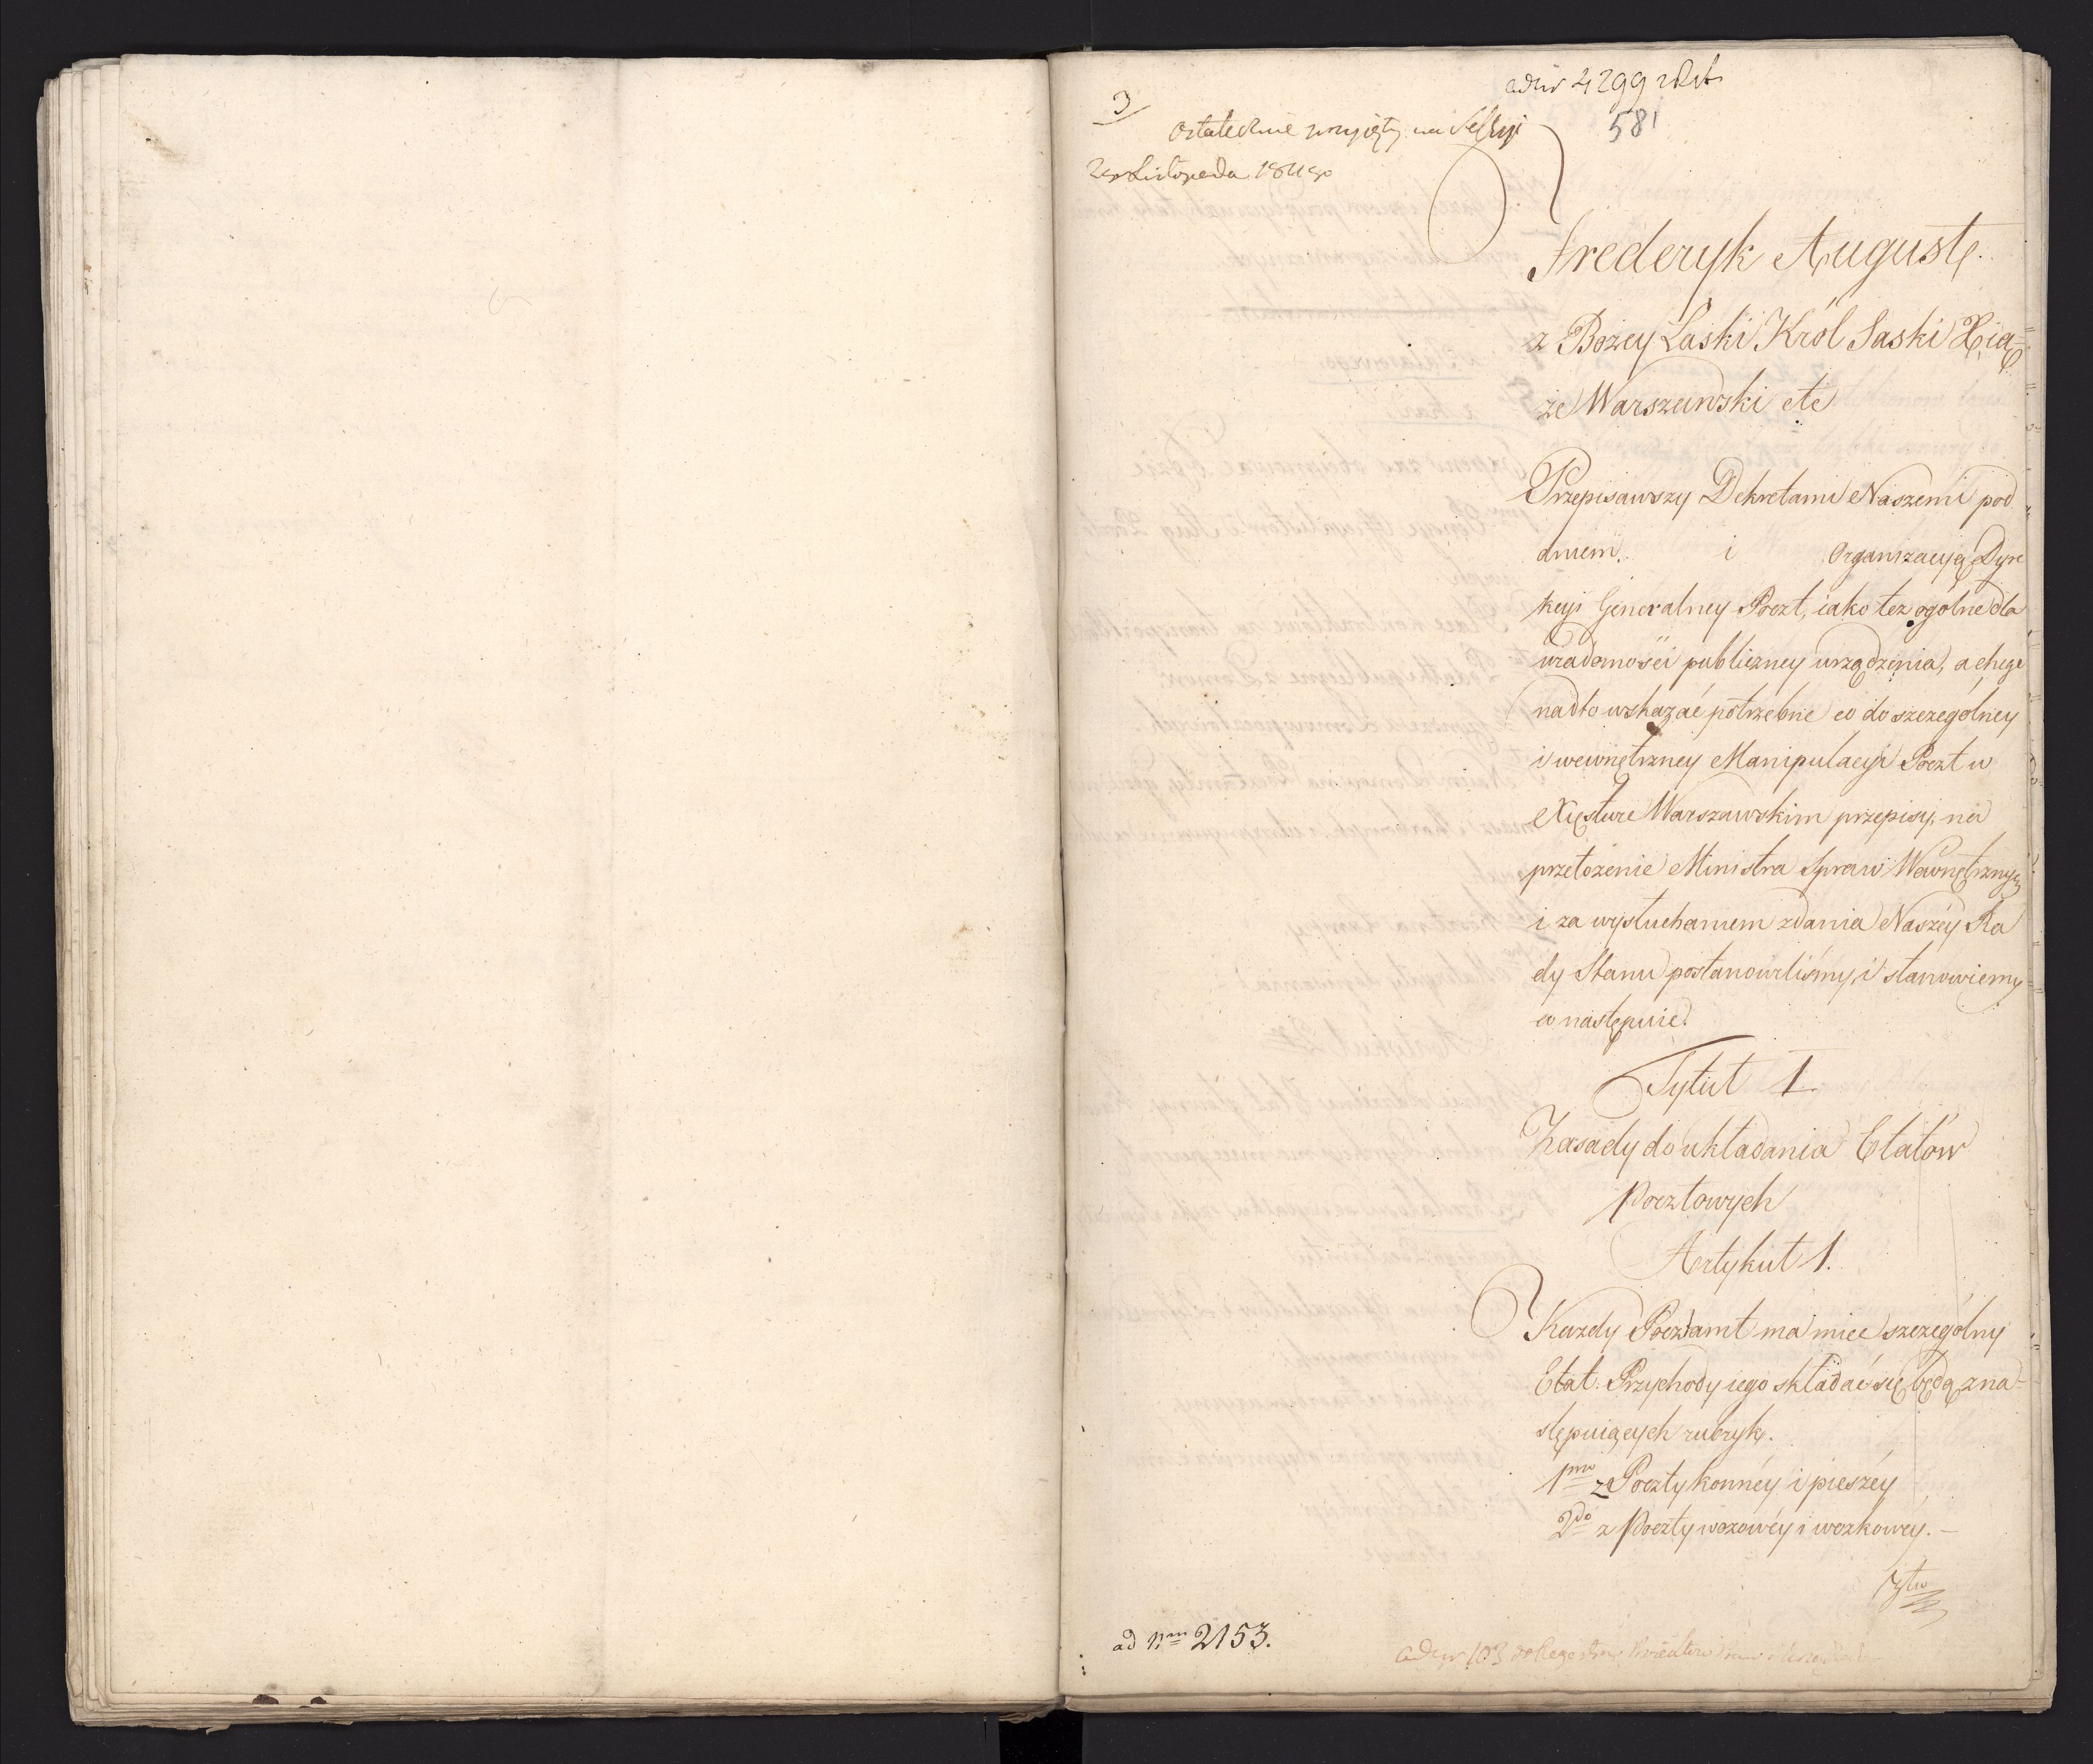 3
4299
581
ostatecznie przyięty na Sessyi
Listopada 1811 go
Frederyk August.
z Bożey Łaski Król Saski Xią=
że Warszawski etc
Przepisawszy Dekretami Naszemi pod
dniem. i Organizacyą Dyre
kcyi Generalney Poczt, iako też ogólne dla
wiadomości publiczney urządzenia, a chcąc
nadto wskazać potrzebne co do szczególney
i wewnętrzney Manipulacyi Poczt w
Xięstwie Warszawskim przepisy, na
przełożenie Ministra Spraw Wewnętrznych
i za wysłuchaniem zdania Naszéy Ra
dy Stanu postanowiliśmy, i stanowiemy
co następuie.
Tytuł 1.
Zasady do układania Etatów
Pocztowych
Artykuł 1.
Każdy Pocztamt ma miec szczególny
Etat. Przychody iego składać się będą z na=
stępuiących rubryk.
1mo z Poczty konnéy i pieszéy
2do z Poczty wozowéy i wozkowéy. —
3tio
ad Nrm 2153.
103